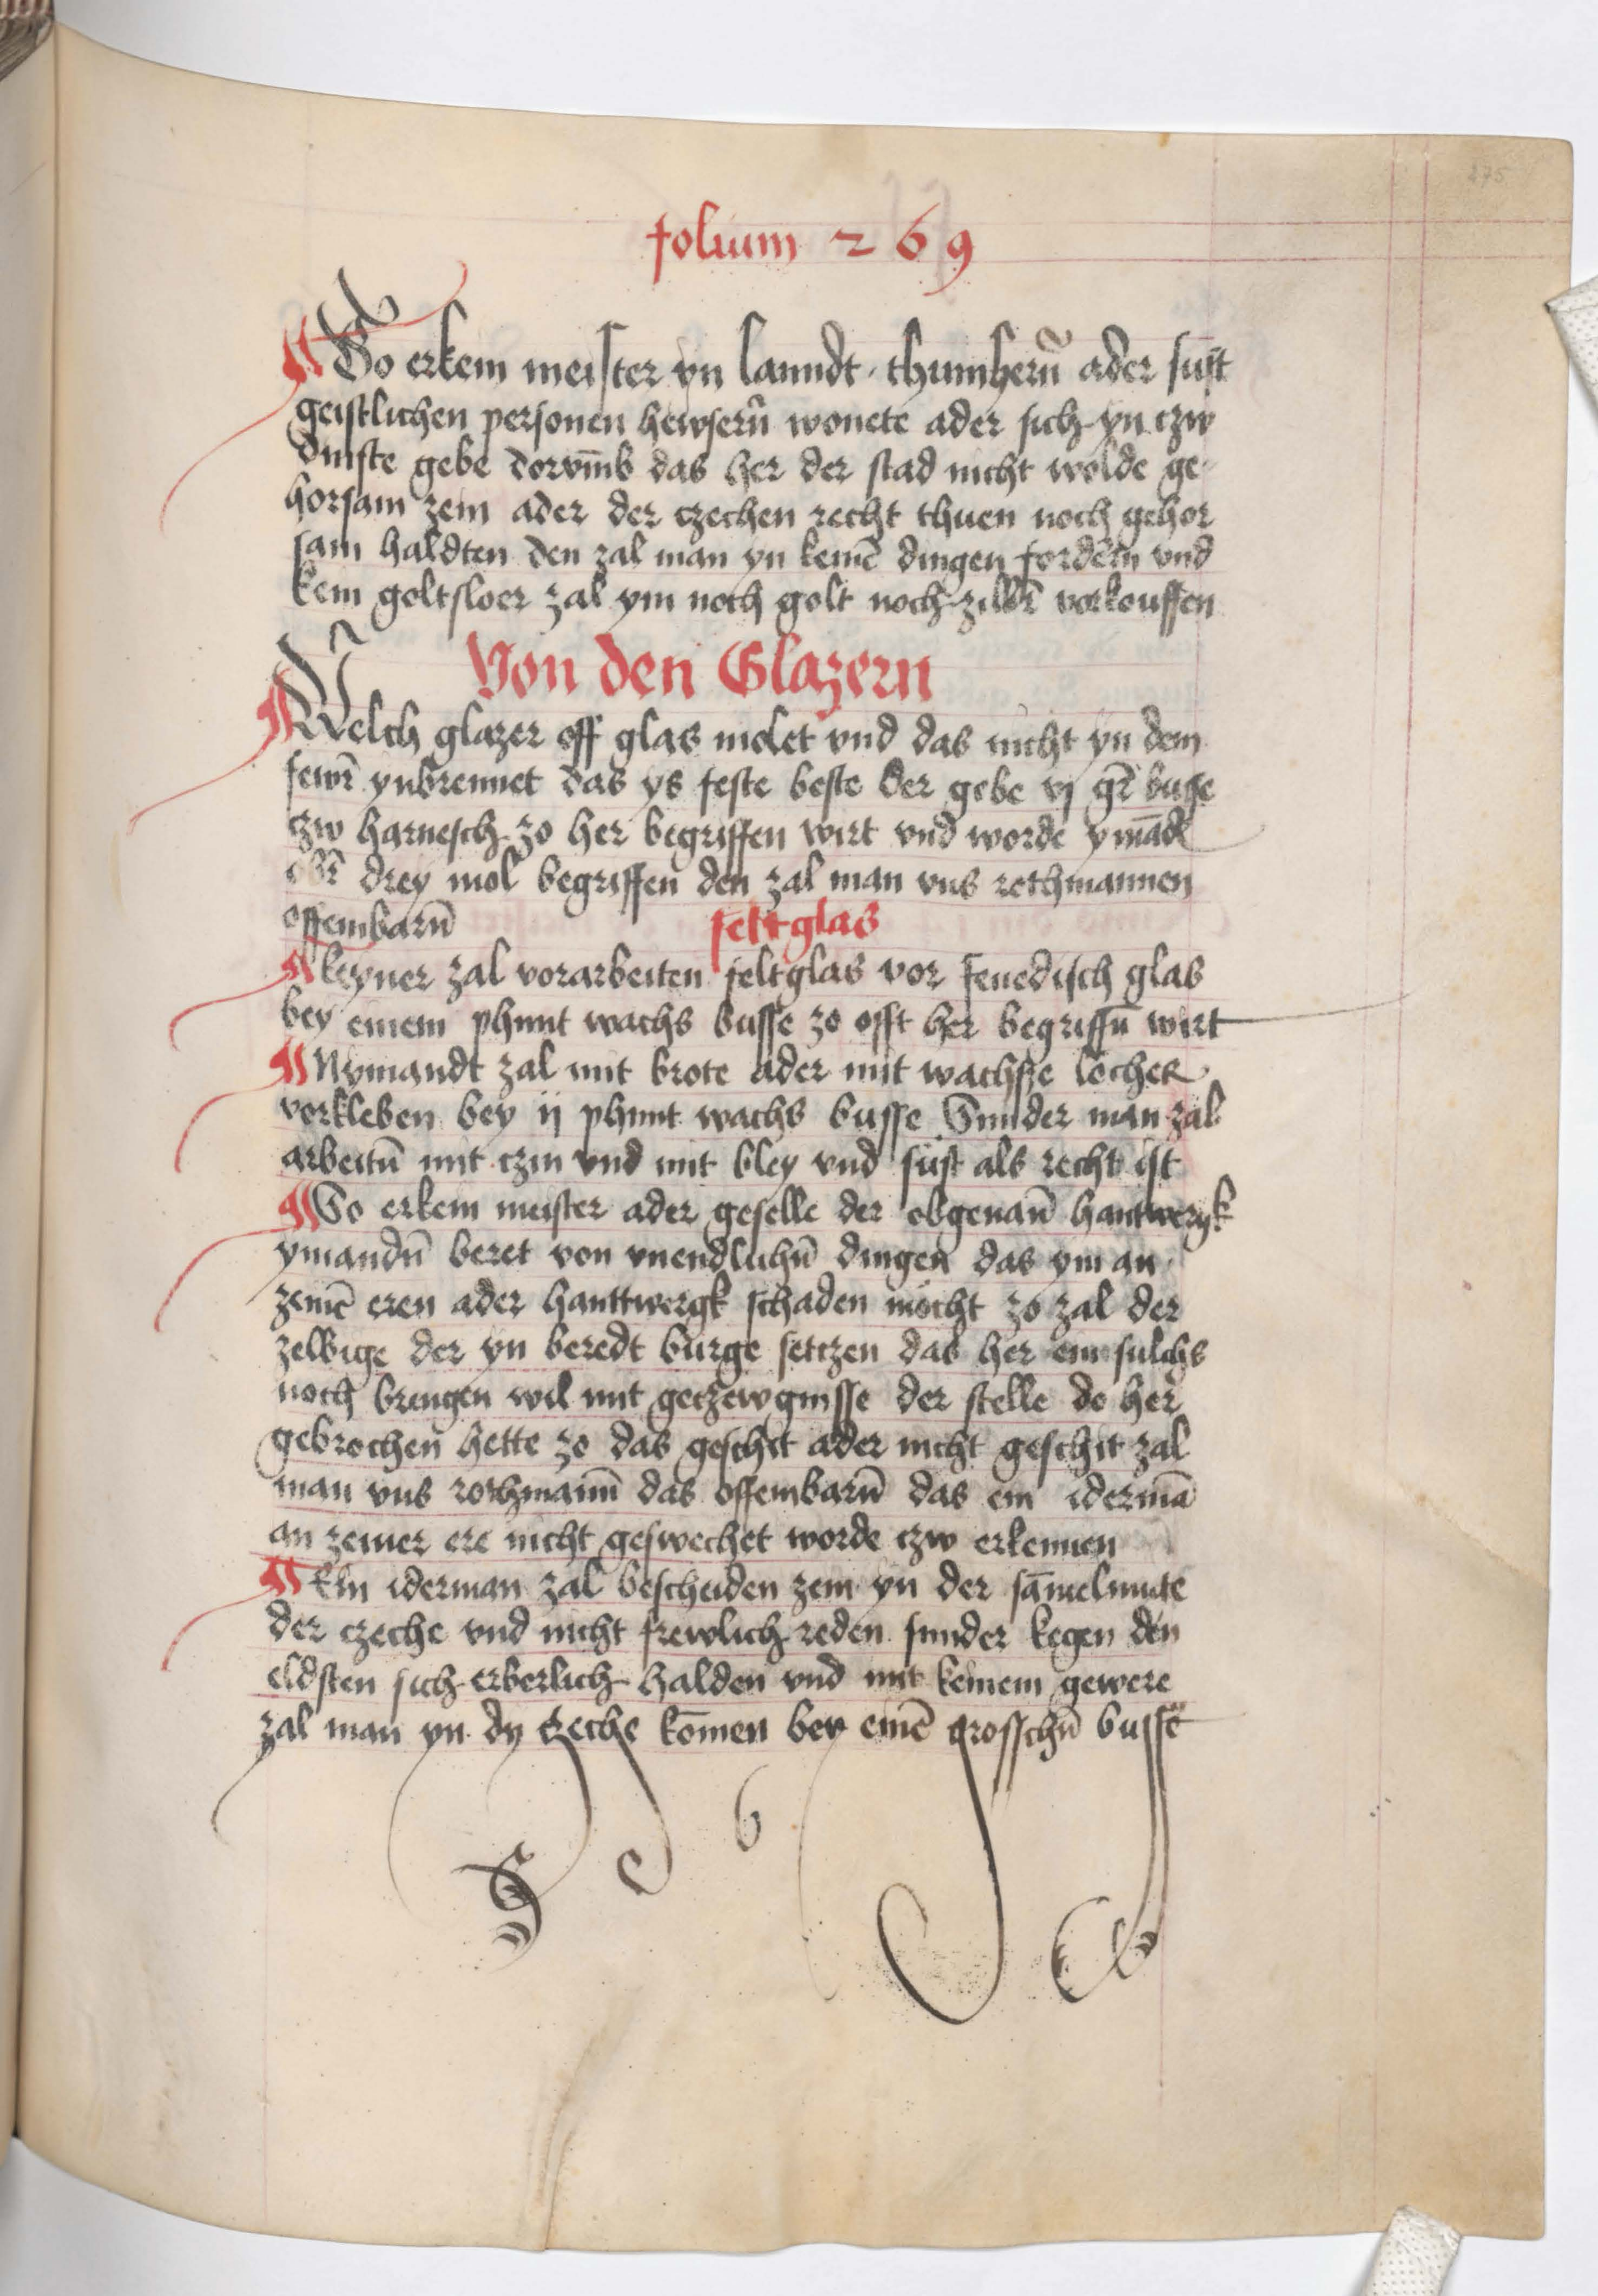 275
folium 269
Wo erkein meister yn lanndt thumherñ ader sust
geistlichen personen hewserñ wonete ader sich yn czw
dinste gebe dorvm̄b das her der stad nicht wolde ge
horsam zein ader der czechen recht thuen noch gehor
sam haldten den zal man yn keinē dingen fordern vnd
kein goltsloer zal ym noch golt noch zilbr̄ vorkouffen
Von den Glazern
Welch glazer off glas molet vnd das nicht yn dem
fewr̄ ynbrennet das ys feste beste der gebe vj gr̄ busse
czw harnesch zo her begriffen wirt vnd worde ymādt
obr̄ drey mol begriffen den zal man vns rothmannen
offembarn̄
feltglas
keyner zal vorarbeiten feltglas vor fenedisch glas
bey einem phunt wachs busse zo offt her begriffn̄ wirt
Nymandt zal mit brote ader mit wachsze locher
vorkleben bey ij phunt wachs busse Sunder man zal
arbeitn̄ mit czin vnd mit bley vnd sust als recht ist
Wo erkein meister ader geselle der obgenan̄ hantwergk
ymandn̄ beret von vnendlichn̄ dingen das ym an
zeinē eren ader hanttwergk schaden mocht zo zal der
zelbige der yn beredt burge setczen das her ein sulchs
noch brengen wil mit getzewgnisse der stelle do her
gebrochen hette zo das geschit ader nicht geschit zal
man vns rothman̄n das offembarn̄ das ein idermā
an zeiner ere nicht geswechet worde czw erkennen
Ein iderman zal bescheiden zein yn der sām̄elunge
der czeche vnd nicht frewlich reden sunder kegen den
eldsten sich erberlich halden vnd mit keinem gewere
zal man yn dy tzeche kōmen bey einē grosschn̄ busse